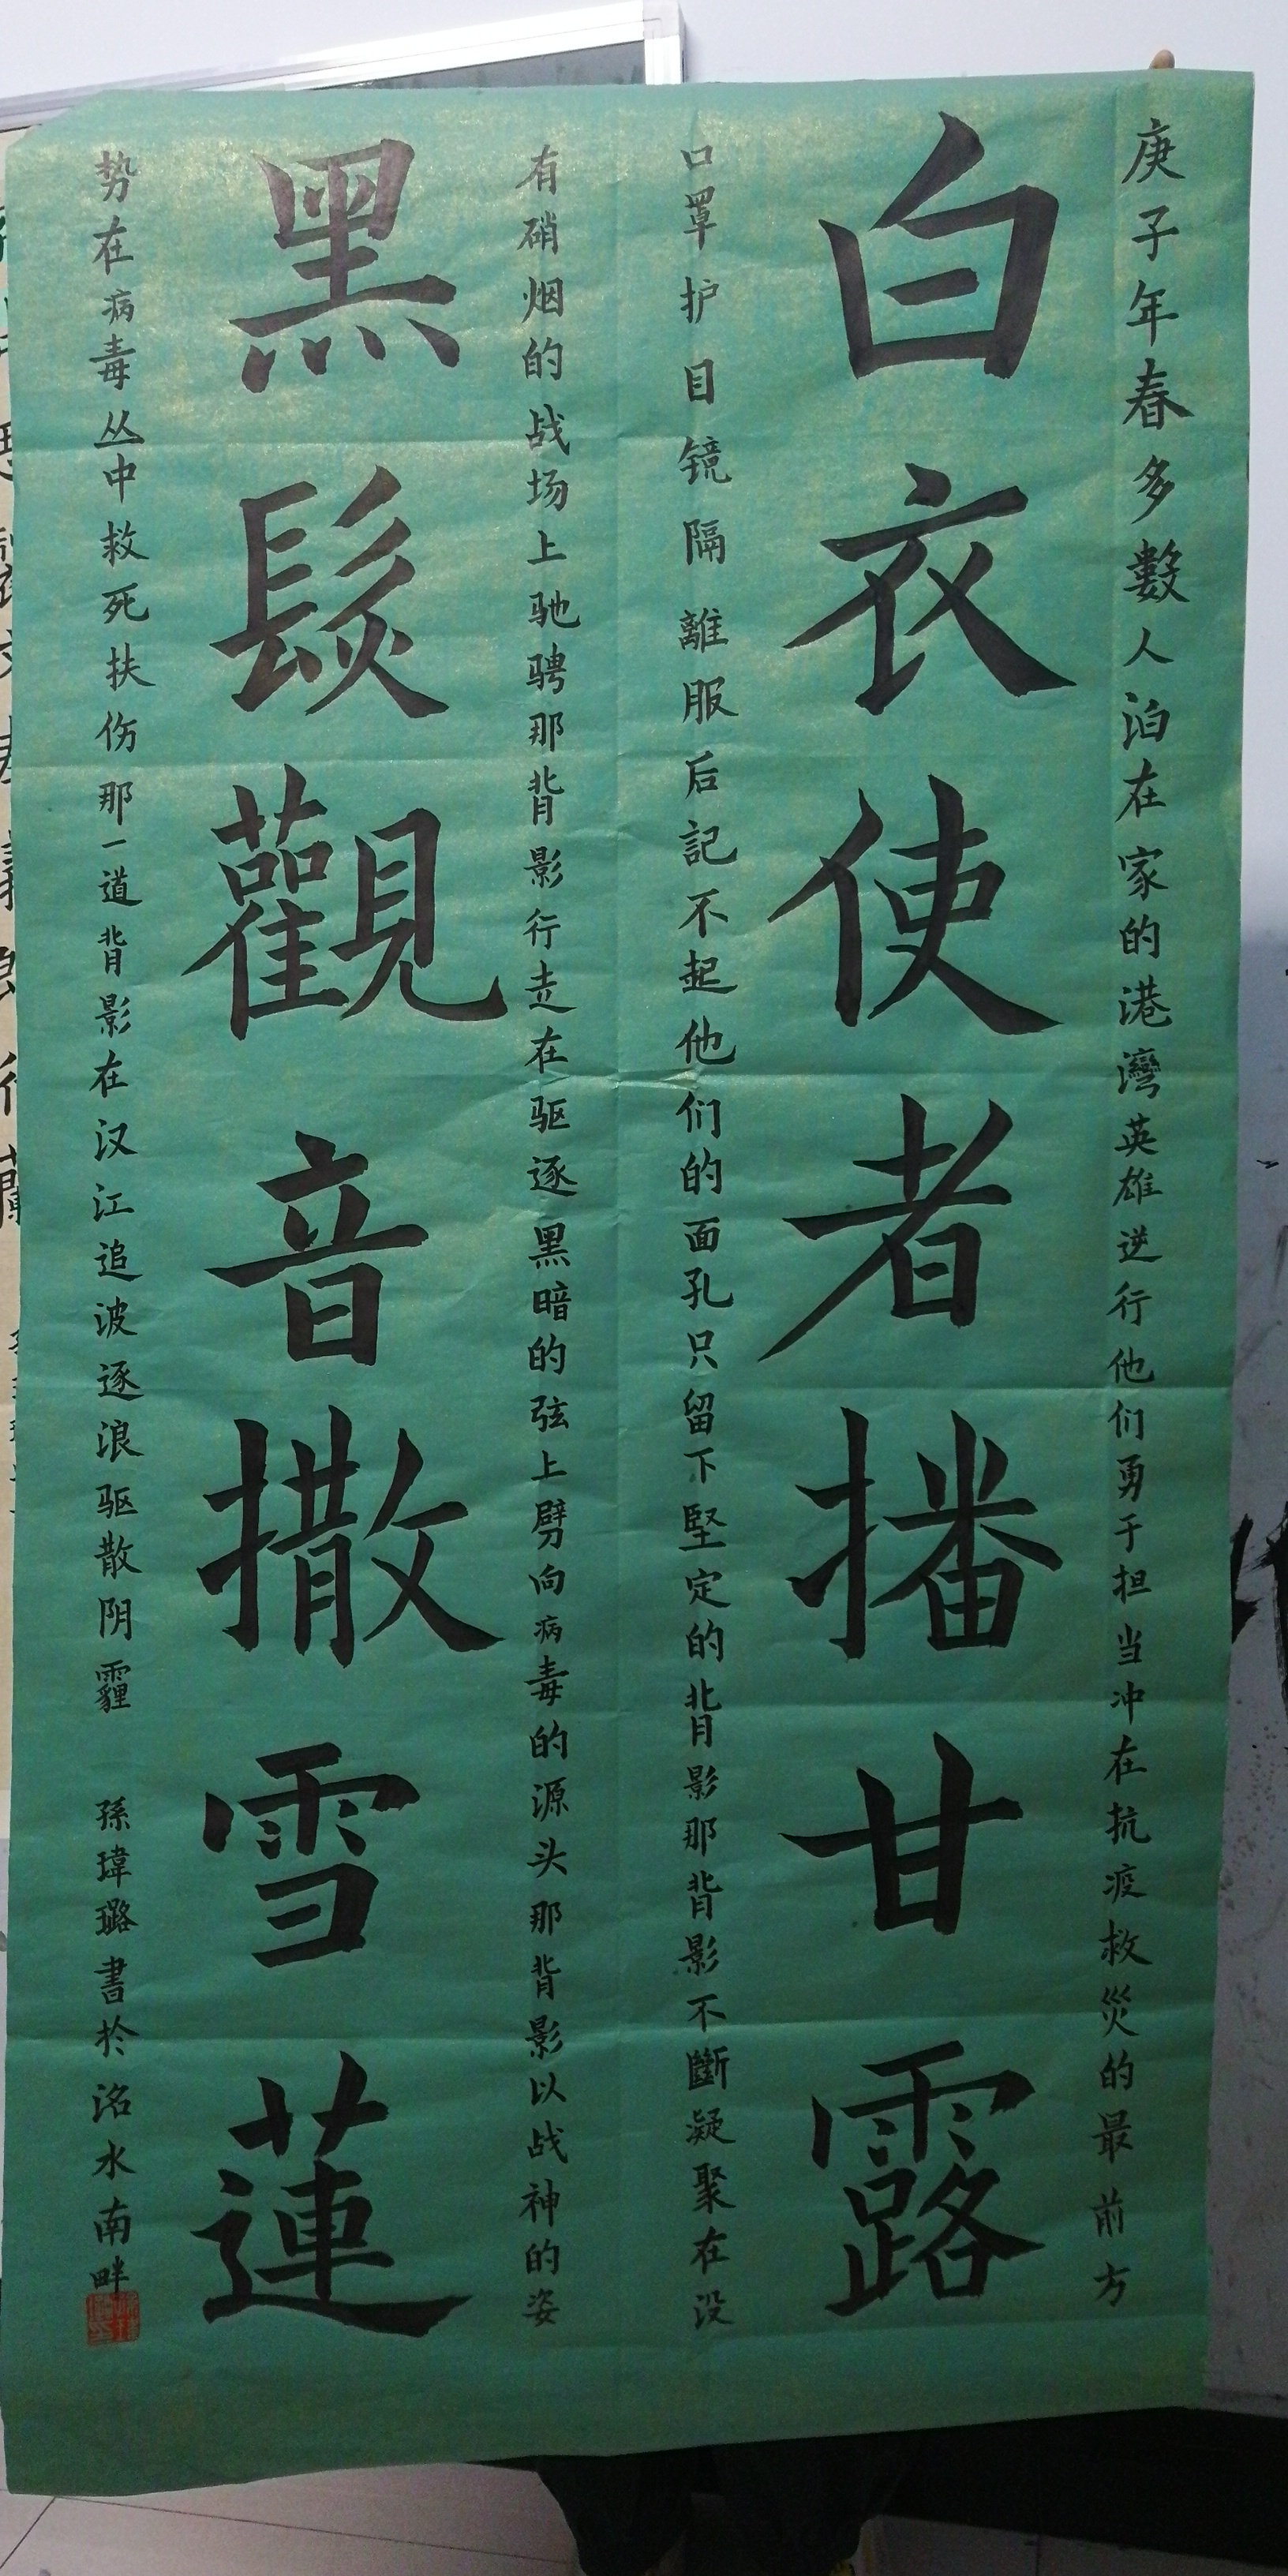 庚子年春多數人泊在家的港灣英雄逆行他们勇于担当冲在抗疫救災的最前方
白衣使者播甘露
口罩护目镜隔離服后記不起他们的面孔只留下堅定的背影那背影不斷凝聚在没
有硝烟的战场上驰骋那背影行走在驱逐黑暗的弦上劈向病毒的源头那背影以战神的姿
黑髮觀音撒雪蓮
势在病毒丛中救死扶伤那一道背影在汉江追波逐浪驱散阴霾 孫瑋璐書於洺水南畔